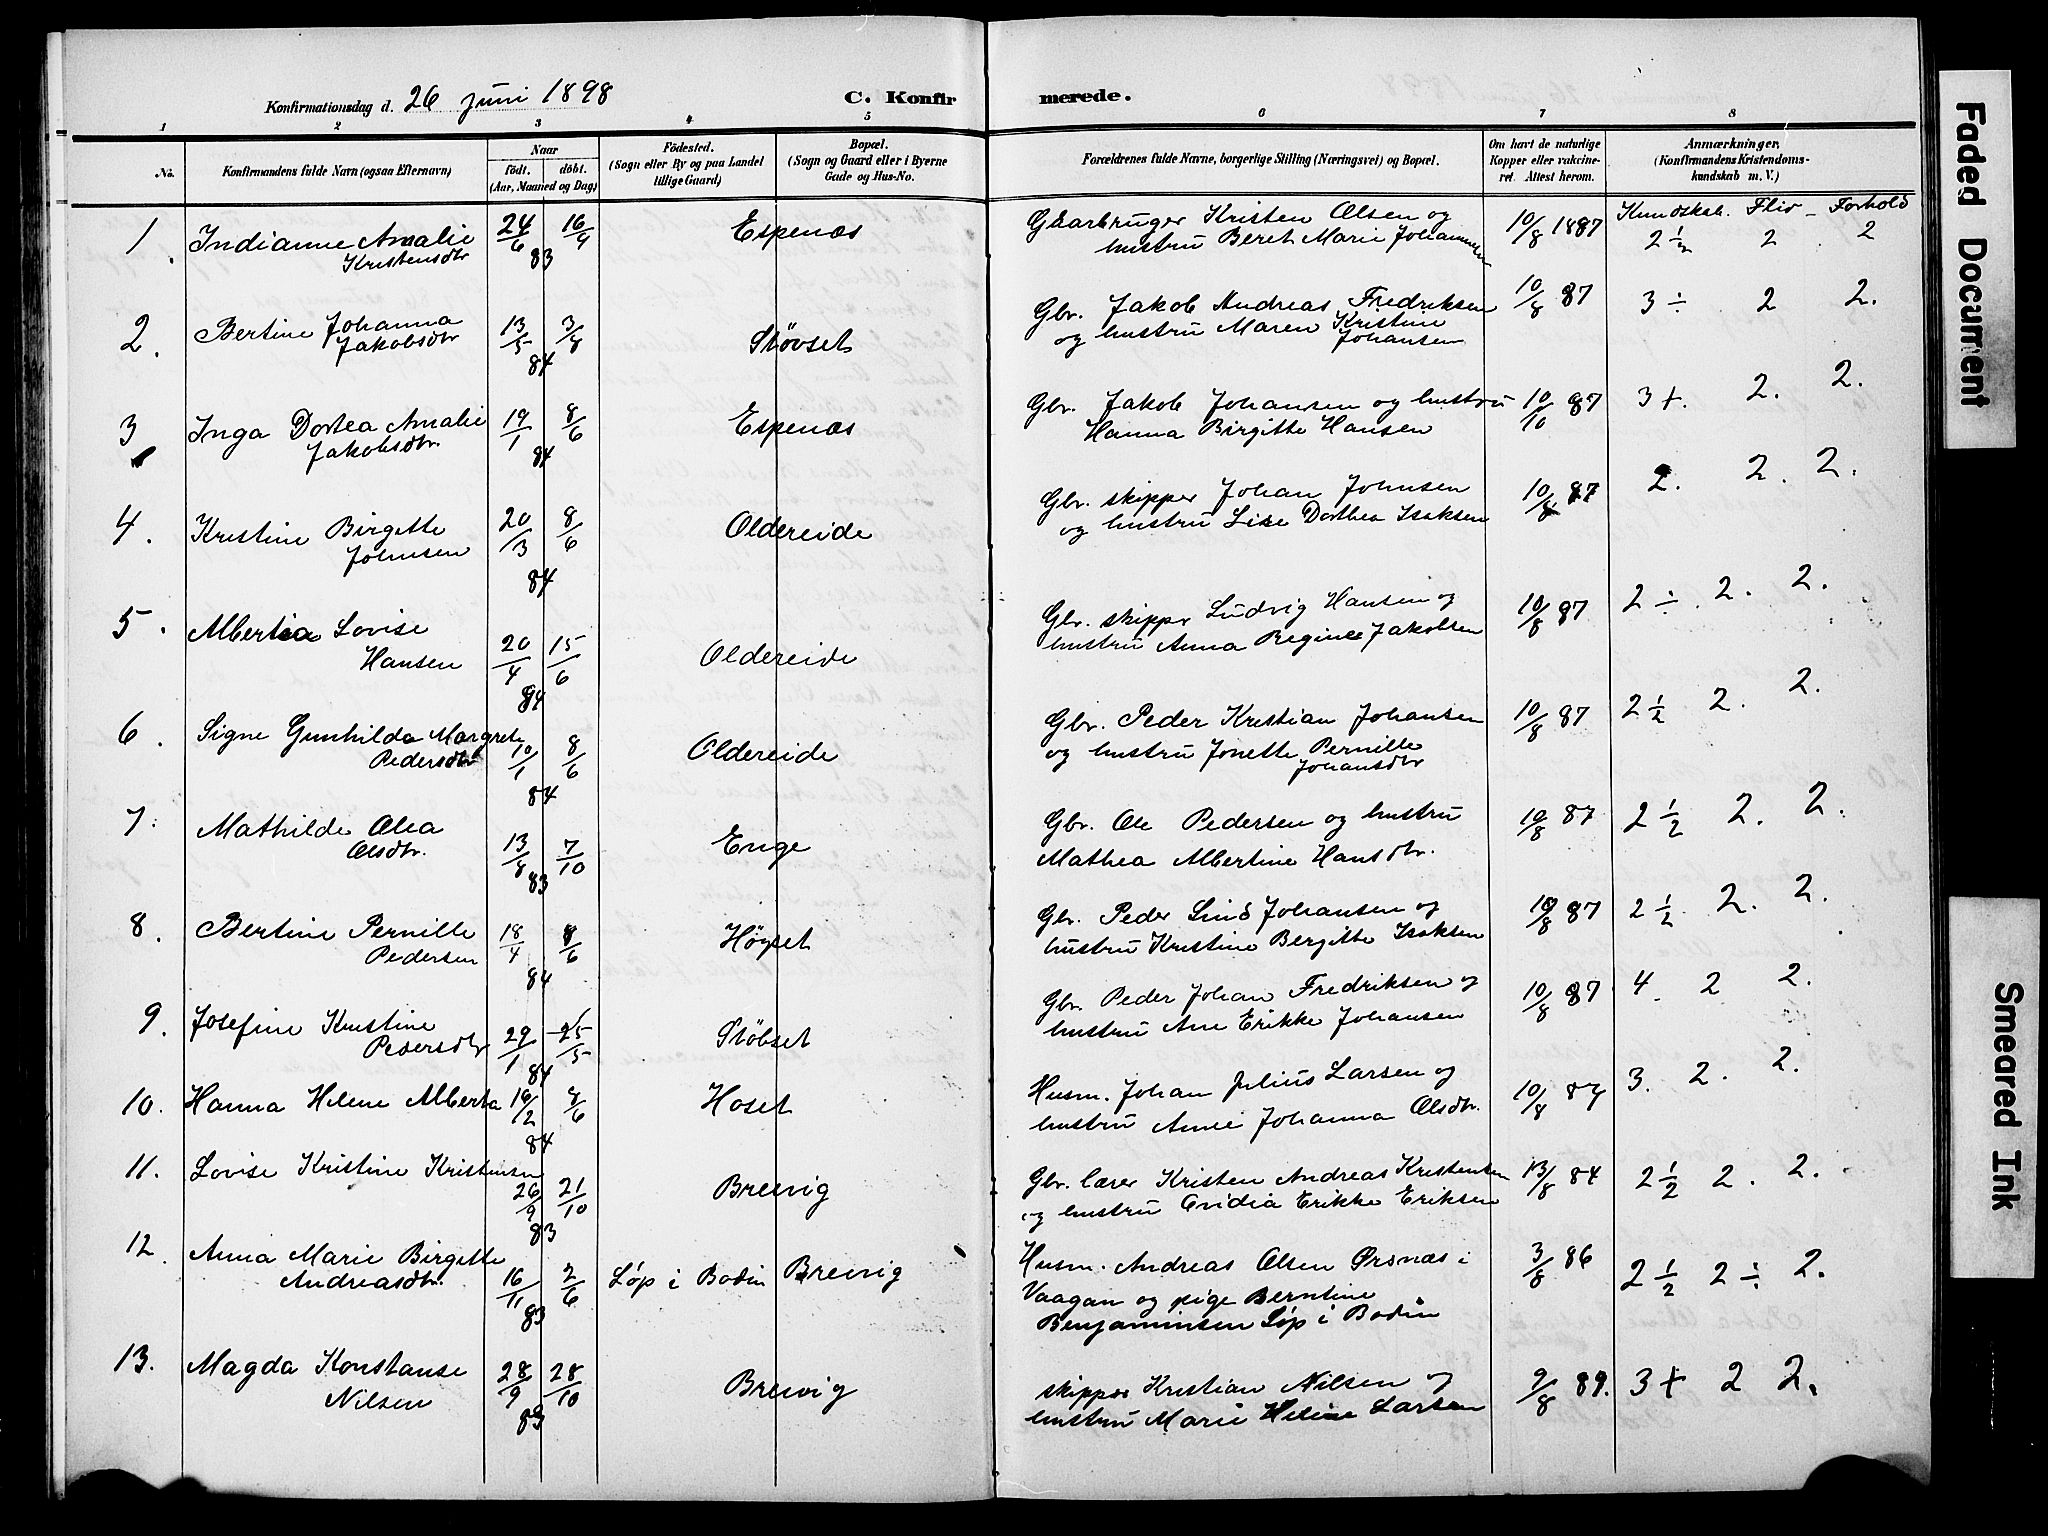 Konfirmationsdag d. 26 juni 1898 C. Konfirmerede.
1 2 3 4 5 6 7 8
No. Konfirmandens fulde Navn (ogsaa Efternavn) Naar födt. döbt. (Aar, Maaned og Dag) Födested. (Sogn eller By og paa Landet tillige Gaard) Bopæl. (Sogn og Gaard eller i Byerne Gade og Hus-No. Forældrenes fulde Navne, borgerlige Stilling (Næringsvei) og Bopæl. Om havt de naturlige Kopper eller vakcineret. Attest herom. Anmærkninger, (Konfirmandens Kristendomskundskab m. V.)
Kundskab. Flid - Forhold
1. Indianne Amalie 24/6 16/9 Espenæs Gaarbruger Kristen Olsen og 10/8 1887 2 1/2 2 2
Kristensdtr 83 hustru Beret Marie Johannsen
2. Bertine Johanna 13/5 3/8 Støvset Gbr. Jakob Andreas Fredriksen 10/8 87 3 ÷ 2 2.
Jakobsdtr 84 og hustru Maren Kristine
Johansen
3 Inga Dortea Amalie 19/1 8/6 Espenæs Gbr. Jakob Johansen og hustru 10/10 87 3 +. 2. 2.
Jakobsdtr. 84 Hanna Birgitte Hansen
4. Kristine Birgitte 20/3 8/6 Oldereide Gbr. skipper Johan Johnsen 10/8 87 2. 2. 2.
Johnsen 84 og hustru Lise Dorthea Isaksen
5. Albertia Lovise 20/4 15/6 Oldereide Gbr. skippr Ludvig Hansen og 10/8 87 2 ÷. 2. 2.
Hansen 84 hustru Anna Regine Jakobsen
6. Signe Gunhilda Margrete 10/1 8/6 Oldereide Gbr. Peder Kristian Johansen 10/8 87 2 1/2 2. 2.
Pedersdtr 84 og hustru Jonette Pernille
Johansdtr
7. Mathilde Olea 13/8 7/10 Enge Gbr. Ole Pedersen og hustru 10/8 87 2 1/2 2. 2.
Olsdtr. 83 Mathea Albertine Hansdtr.
8. Bertine Pernille 18/4 8/6 Høgset Gbr. Peder Johansen og 10/8 87 2 1/2 2. 2.
Pedersen 84 hustru Kristine Bergitte Isaksen
9. Josefine Kristine 29/1 25/5 Støbset Gbr. Peder Johan Fredriksen og 10/8 87 4. 2 2.
Pedersdtr 84 hustru Ane Erikke Johansen
10. Hanna Helene Alberta 16/2 8/6 Hoset Husm. Johan Julius Larsen og 10/8 87 3. 2. 2.
84 hustru Anne Johanna Olsdtr.
11. Lovise Kristine Kristensen 26/9 21/10 Breivig Gbr. lærer Kristen Andreas Kristensen 13/8 84 2 1/2 2. 2.
83 og hustru Ovidia Erikke Eriksen
12. Anna Marie Birgitte 16/11 2/6 Løp i Bodin Breivig Husm. Andreas Olsen Ørsnæs i 3/8 86 2 1/2 2 ÷ 2.
Andreasdtr. 83 Vaagan og pige Berntine
Benjaminsen Løp i Bodin
13. Magda Konstanse 28/9 28/10 Breivig skipper Kristian Nilsen og 9/8 89. 3 + 2 2.
Nilsen 83 hustru Marie Heline Larsen
Faded Document
Smeared Ink